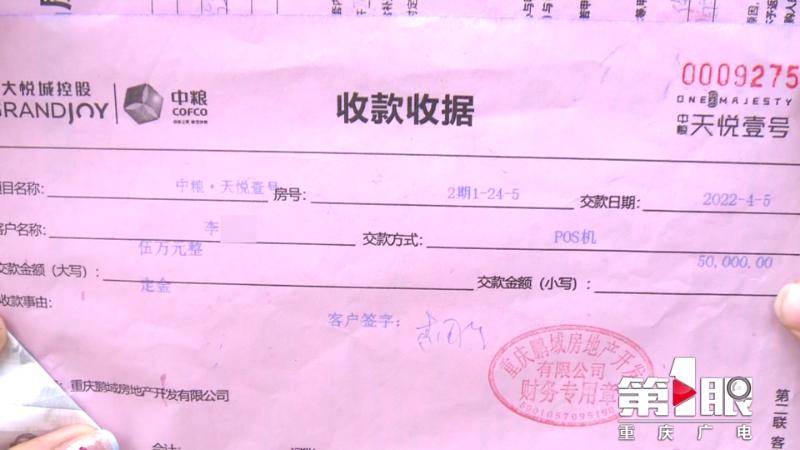 大悦城控股
GRANDJOY
中粮
COFCO
收款收据
0009275
ONE MAJESTY
中粮 天悦壹号
项目名称: 中粮·天悦壹号 房号: 2期1-24-5 交款日期: 2022-4-5
客户名称: 李 交款方式: POS机
伍万元整 50,000.00
交款金额（大写）: 交款金额（小写）:
定金
收款事由:
客户签字:
重庆鹏域房地产开发
有限公司
财务专用章
重庆鹏域房地产开发有限公司
会计:
第二联 客
第1眼
重庆广电